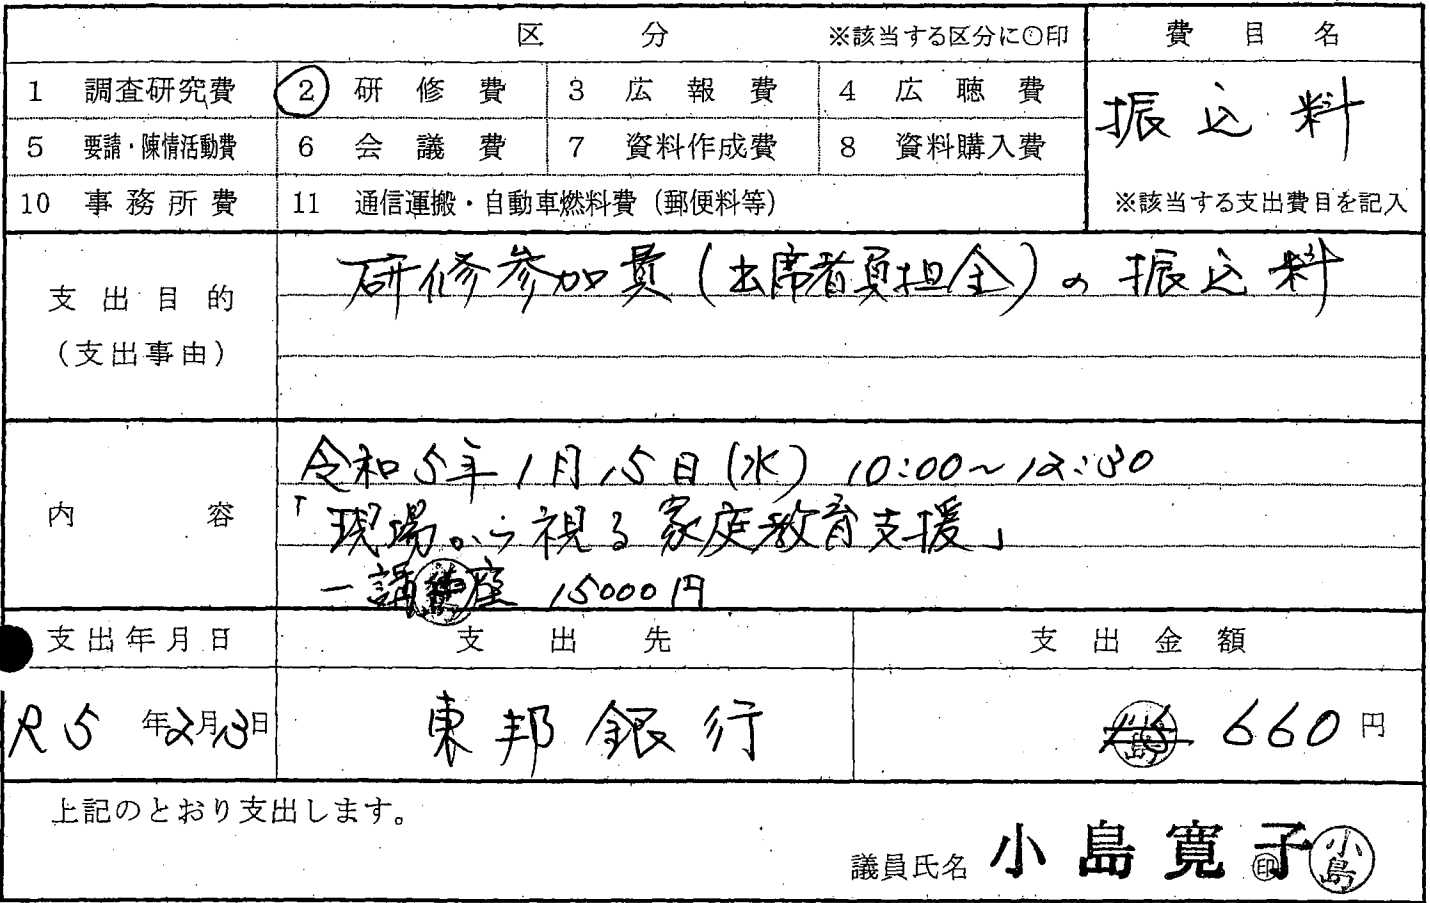 区 分 ※該当する区分に○印 費目名
1 調査研究費 ② 研修費 3 広報費 4 広聴費 振込料
5 要請・陳情活動費 6 会議費 7 資料作成費 8 資料購入費
10 事務所費 11 通信運搬・自動車燃料費（郵便料等） ※該当する支出費目を記入
支出目的
（支出事由）
研修参加費（出席者負担金）の振込料
内容
令和5年1月15日（水）10:00～12:30
「現場から視る家庭教育支援」
一講座 15000円
支出年月日 支出先 支出金額
R5年2月13日 東邦銀行 660円
上記のとおり支出します。
議員氏名 小島寛子 印 小島